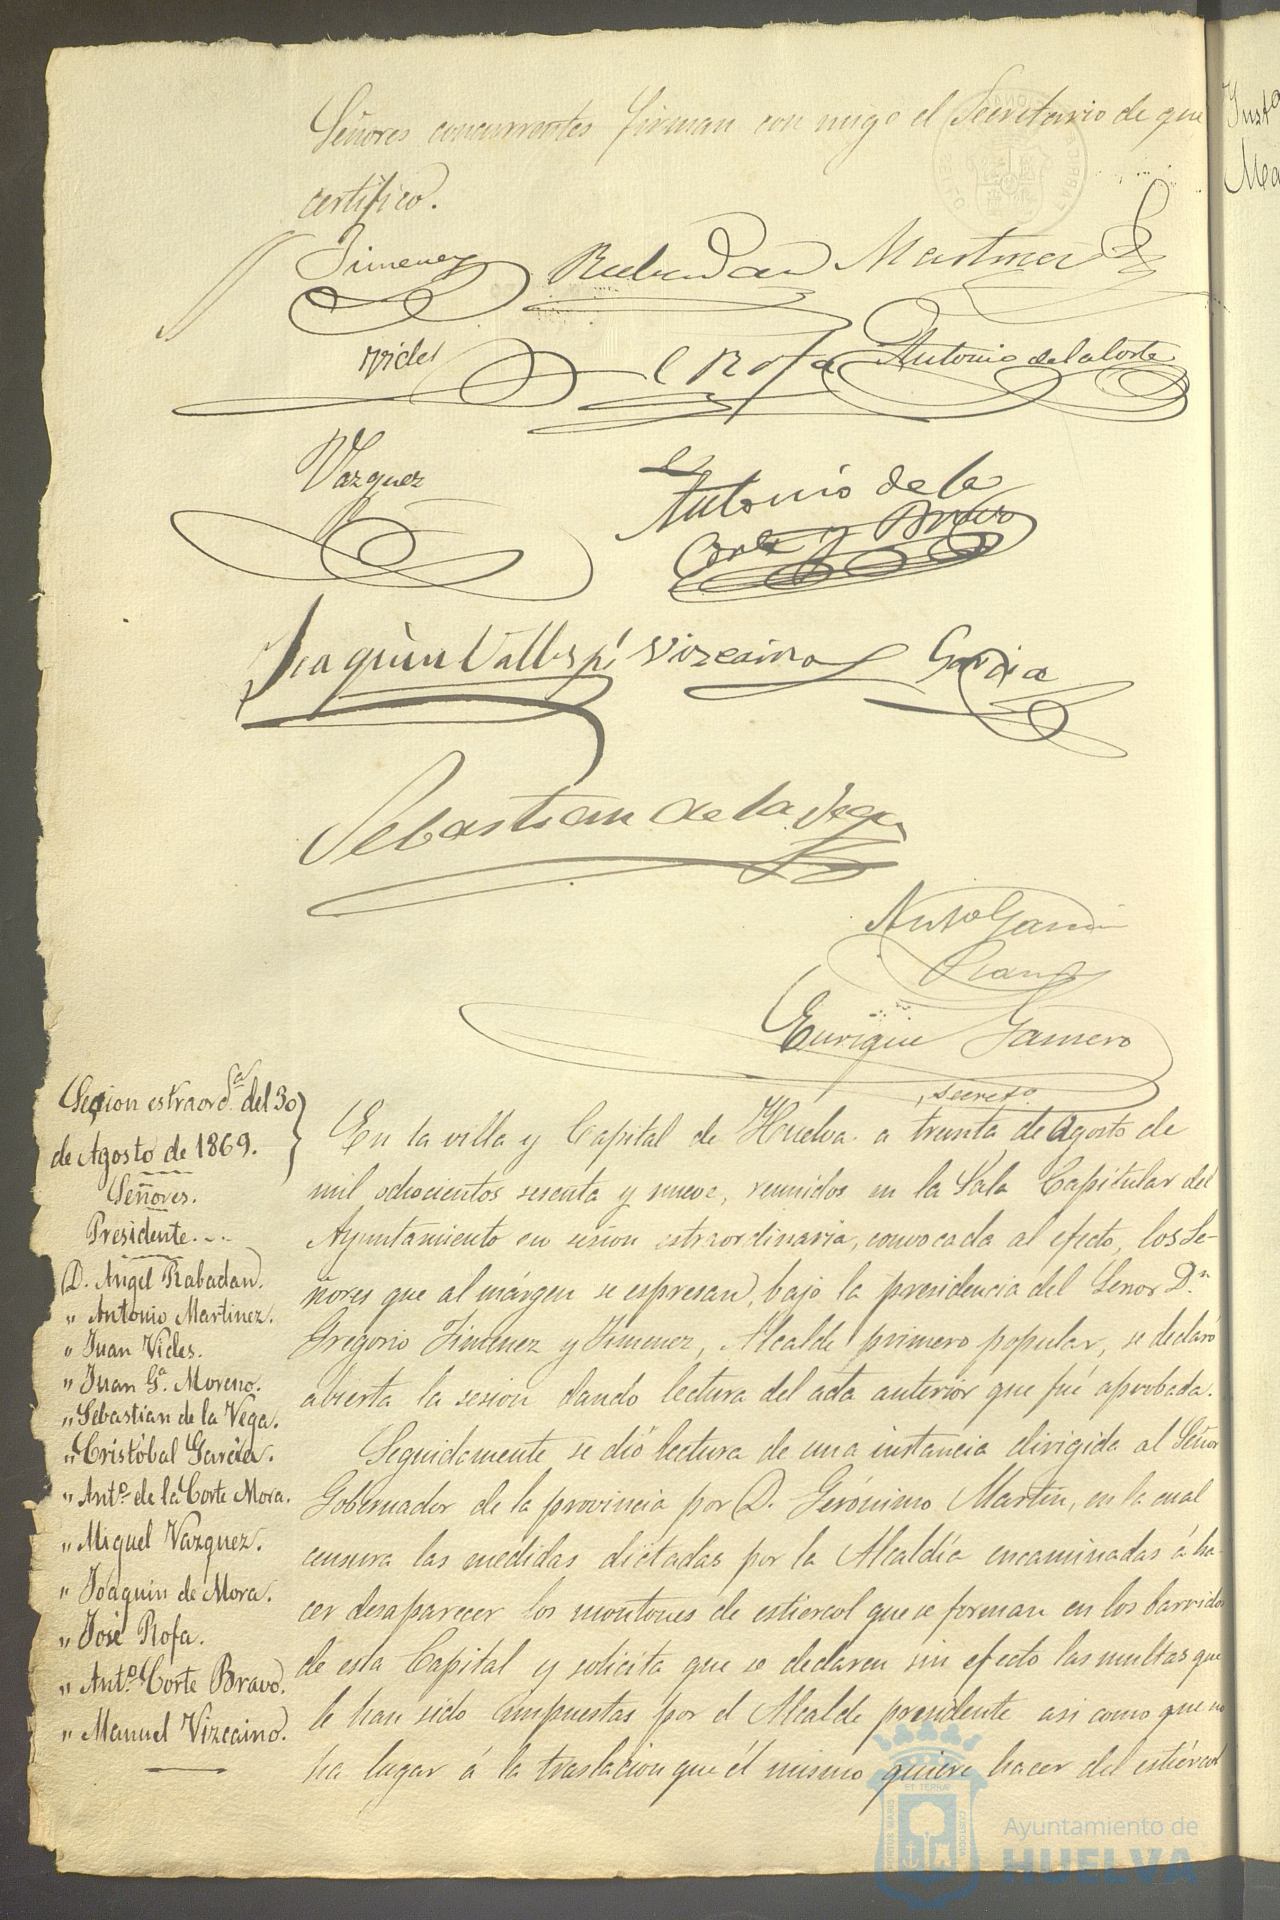 Señores concurrentes firman con migo el Secretario de que
certifico.
Jimenez Rabadan Martinez
Vides C Rofa Antonio de la Corte
Vazquez
Antonio de la
Corte y Bravo
Joaquin Vallespí Vizcaino Garcia
Sebastian de la Vega
Antº Garcia
Enrique Gamero
secretº
Sesion estraordª del 30
de Agosto de 1869.
Señores.
Presidente...
D. Angel Rabadan.
" Antonio Martinez.
" Juan Vides.
" Juan Gª. Moreno.
" Sebastian de la Vega.
" Cristóbal Garcia.
" Antº. de la Corte Mora.
" Miguel Vazquez.
" Joaquin de Mora.
" José Rofa.
" Antº. Corte Bravo.
" Manuel Vizcaino.
En la villa y Capital de Huelva a treinta de Agosto de
mil ochocientos sesenta y nueve, reunidos en la Sala Capitular del
Ayuntamiento en sesion estraordinaria, convocada al efecto, los Se-
ñores que al márgen se espresan, bajo la presidencia del Señor Dn
Gregorio Jimenez y Jimenez, Alcalde primero popular, se declaró
abierta la sesion dando lectura del acta anterior que fué aprobada.
Seguidamente se dió lectura de una instancia dirigida al Señor
Gobernador de la provincia por D. Gerónimo Martin, en la cual
censura las medidas dictadas por la Alcaldía encaminadas á ha-
cer desaparecer los montones de estiercol que se forman en los barridos
de esta Capital y solicita que se declaren sin efecto las multas que
le han sido impuestas por el Alcalde presidente asi como que no
ha lugar á la traslacion que él mismo quiere hacer del estiércol
Ayuntamiento de
HUELVA